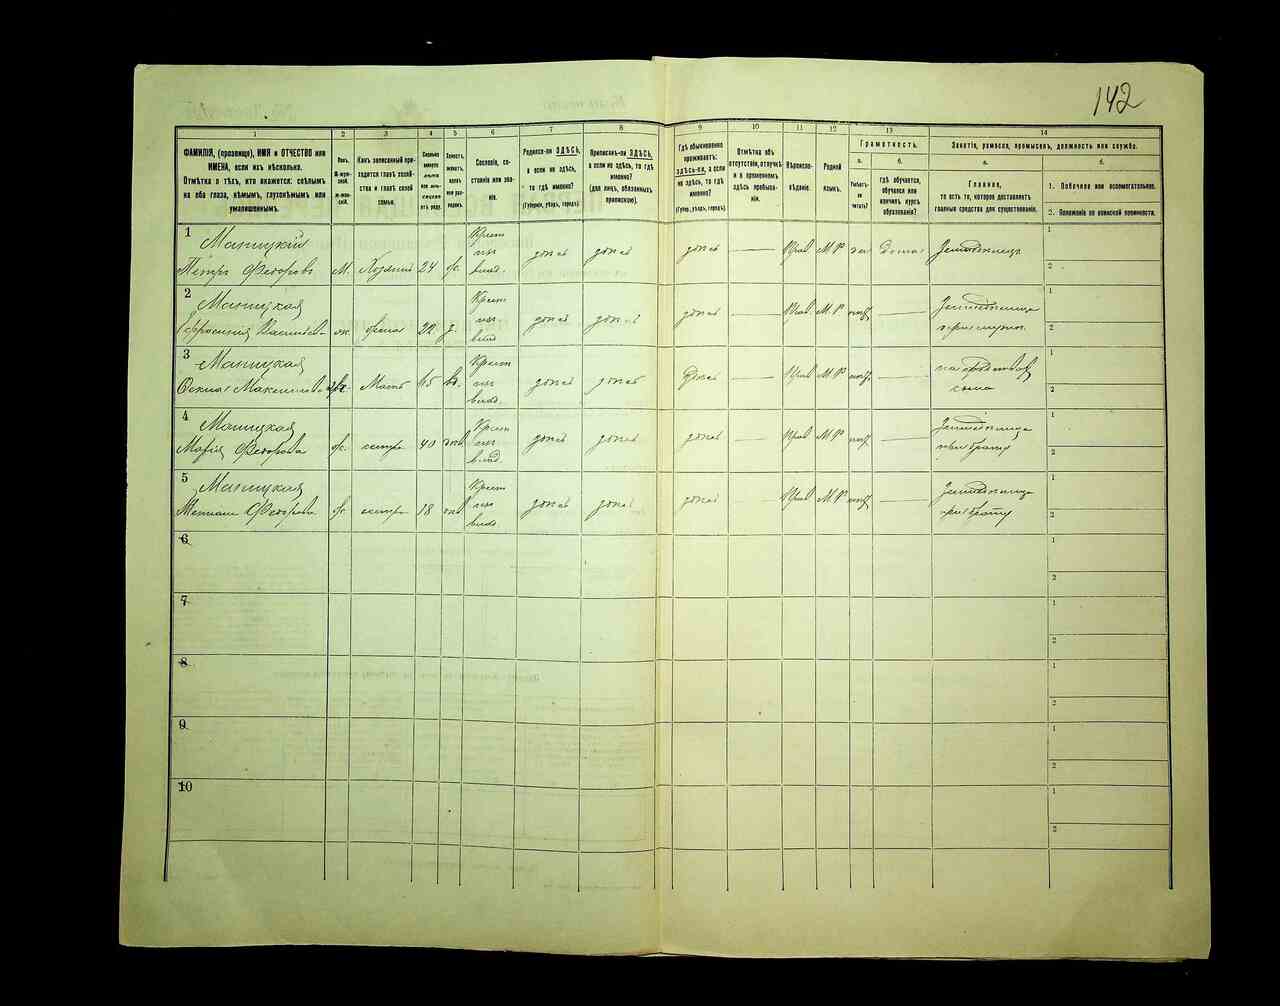 142
1
2
3
4
5
6
7
8
9
10
11
12
13
14
ФАМИЛІЯ, (прозвище), ИМЯ и ОТЧЕСТВО или
ИМЕНА, если ихъ нѣсколько.
Отмѣтка о тѣхъ, кто окажется: слѣпымъ
на оба глаза, нѣмымъ, глухонѣмымъ или
умалишеннымъ.
Полъ.
М-муж-
ской.
Ж-жен-
скій.
Какъ записанный при-
ходится главѣ хозяй-
ства и главѣ своей
семьи.
Сколько
минуло
лѣтъ
или мѣ-
сяцевъ
отъ роду.
Холостъ,
женатъ,
вдовъ
или раз-
веденъ.
Сословіе, со-
стояніе или зва-
ніе.
Родился-ли ЗДѢСЬ,
а если не здѣсь,
то гдѣ именно?
(Губернія, уѣздъ, городъ)
Приписанъ-ли ЗДѢСЬ,
а если не здѣсь, то гдѣ
именно?
(для лицъ, обязанныхъ
припискою).
Гдѣ обыкновенно
проживаетъ:
ЗДѢСЬ-ли, а если
не здѣсь, то гдѣ
именно?
(Губер., уѣздъ, городъ)
Отмѣтка объ
отсутствіи, отлучкѣ
и о временномъ
здѣсь пребыва-
ніи.
Вѣроиспо-
вѣданіе.
Родной
языкъ.
Грамотность.
а.
б.
Умѣетъ-
ли
читать?
гдѣ обучается,
обучался или
кончилъ курсъ
образованія?
Занятіе, ремесло, промыселъ, должность или служба.
а.
б.
Главное,
то есть то, которое доставляетъ
главныя средства для существованія.
1. Побочное или вспомогательное.
2. Положеніе по воинской повинности.
1
Маницкій
Петръ Федоровъ
М.
Хозяинъ
24
Крест
изъ
влад.
здѣсь
здѣсь
здѣсь
Прав
М.Р
да
дома
1
2
2
Маницкая
ж.
жена
22
Крест
изъ
влад
здѣсь
здѣсь
здѣсь
Прав
М.Р
1
2
3
Маницкая
Максимова
Мать
65
вд.
Крест
изъ
влад.
здѣсь
здѣсь
здѣсь
Прав
М.Р
сына
1
2
4
Маницкая
Марія Федорова
ж.
сестра
40
Крест
изъ
влад.
здѣсь
здѣсь
здѣсь
Прав
М.Р
1
2
5
Маницкая
Федорова
ж.
сестра
18
Крест
изъ
влад
здѣсь
здѣсь
здѣсь
Прав
М.Р
при брату
1
2
6
1
2
7
1
2
8
1
2
9
1
2
10
1
2